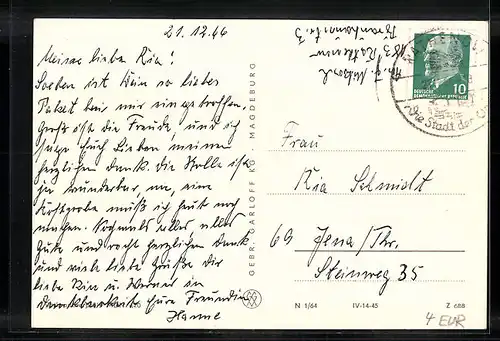 21.12.66
Meine liebe Kia!
Soeben ist Dein so liebes
Paket bei mir eingetroffen,
groß ist die Freude, und ich
sage Euch Lieben meinen
herzlichen Dank. Die Stolle ist
ja wunderbar, eine
Kostprobe muß ich heut noch
machen. Nochmals alles, alles
Gute und recht herzlichen Dank
und viele liebe Grüße Dir
liebe Kia u. Werner in
Dankbarkeit Eure Freundin
Hanne
GEBR. GARLOFF KG MAGDEBURG
183 Rathenow
10
DEUTSCHE
DEMOKRATISCHE REPUBLIK
Die Stadt der
Frau
Kia Schmidt
69 Jena/Thr.
Steinweg 35
N 1/64 IV-14-45 Z 688
4 EUR